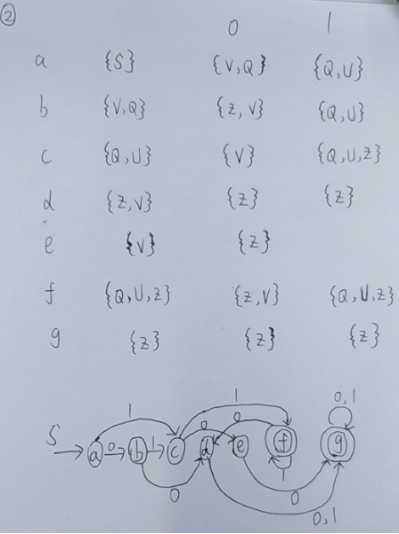 ②
0 1
a {S} {V,Q} {Q,U}
b {V,Q} {Z,V} {Q,U}
c {Q,U} {V} {Q,U,Z}
d {Z,V} {Z} {Z}
e {V} {Z}
f {Q,U,Z} {Z,V} {Q,U,Z}
g {Z} {Z} {Z}
1 1 0,1
0 0
S a 0 b 1 c d e f g
1
0 0
0,1